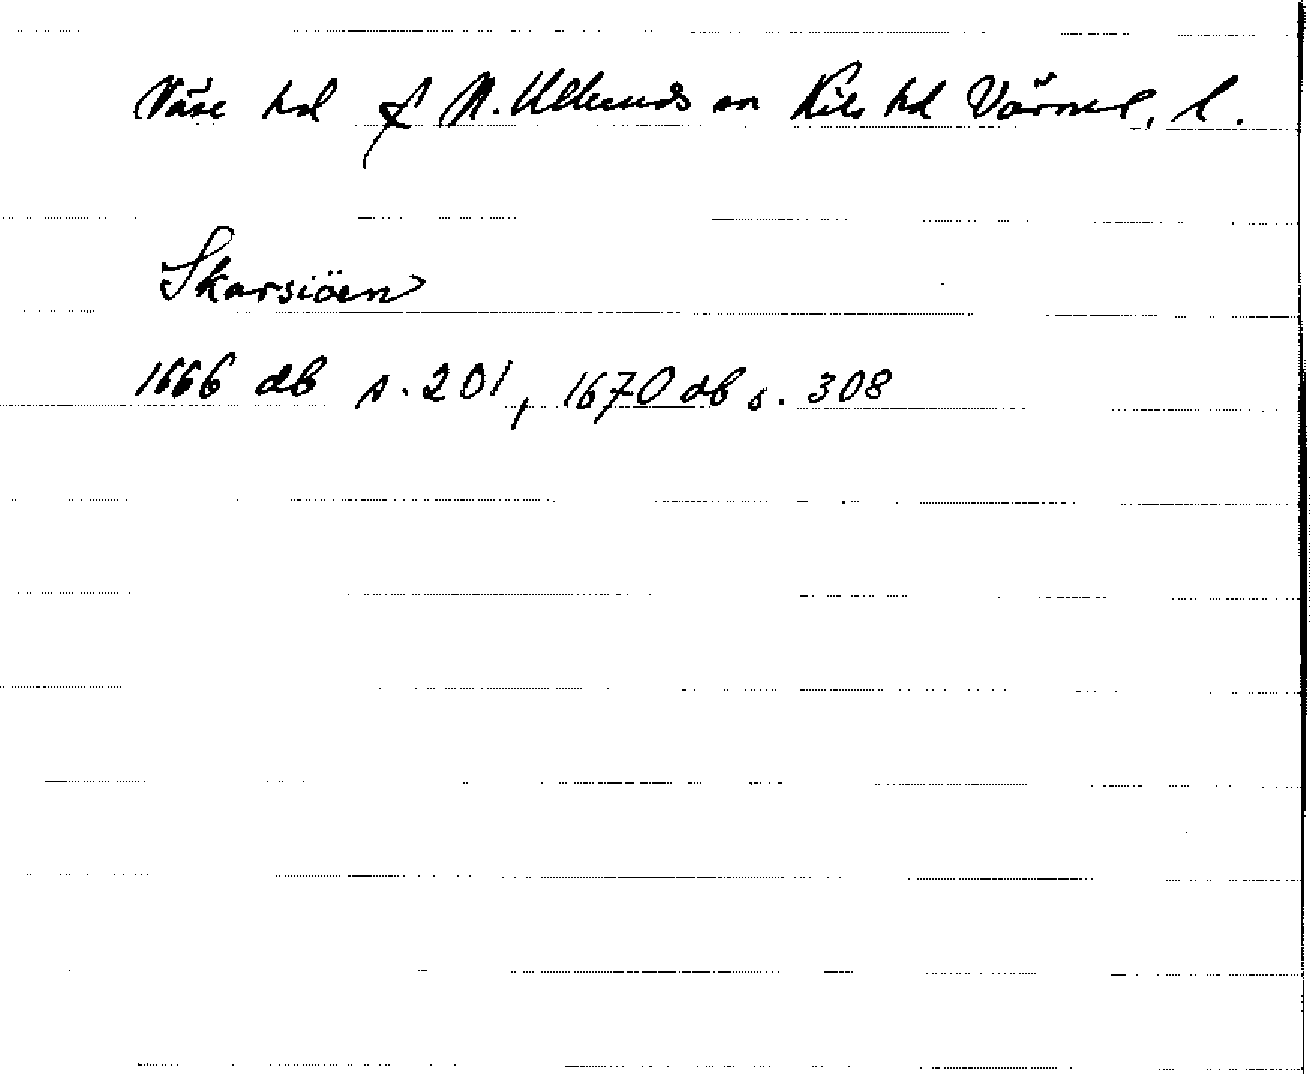 Väse hd f N. Ulleruds sn Kils hd Värml. l.
Skarsiöen
1666 db s. 201, 1670 db s. 308